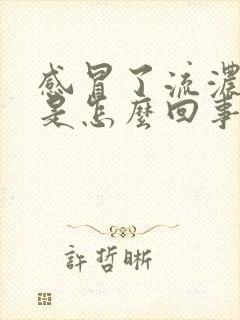 感冒了流濃
是怎麼回事
許哲晰